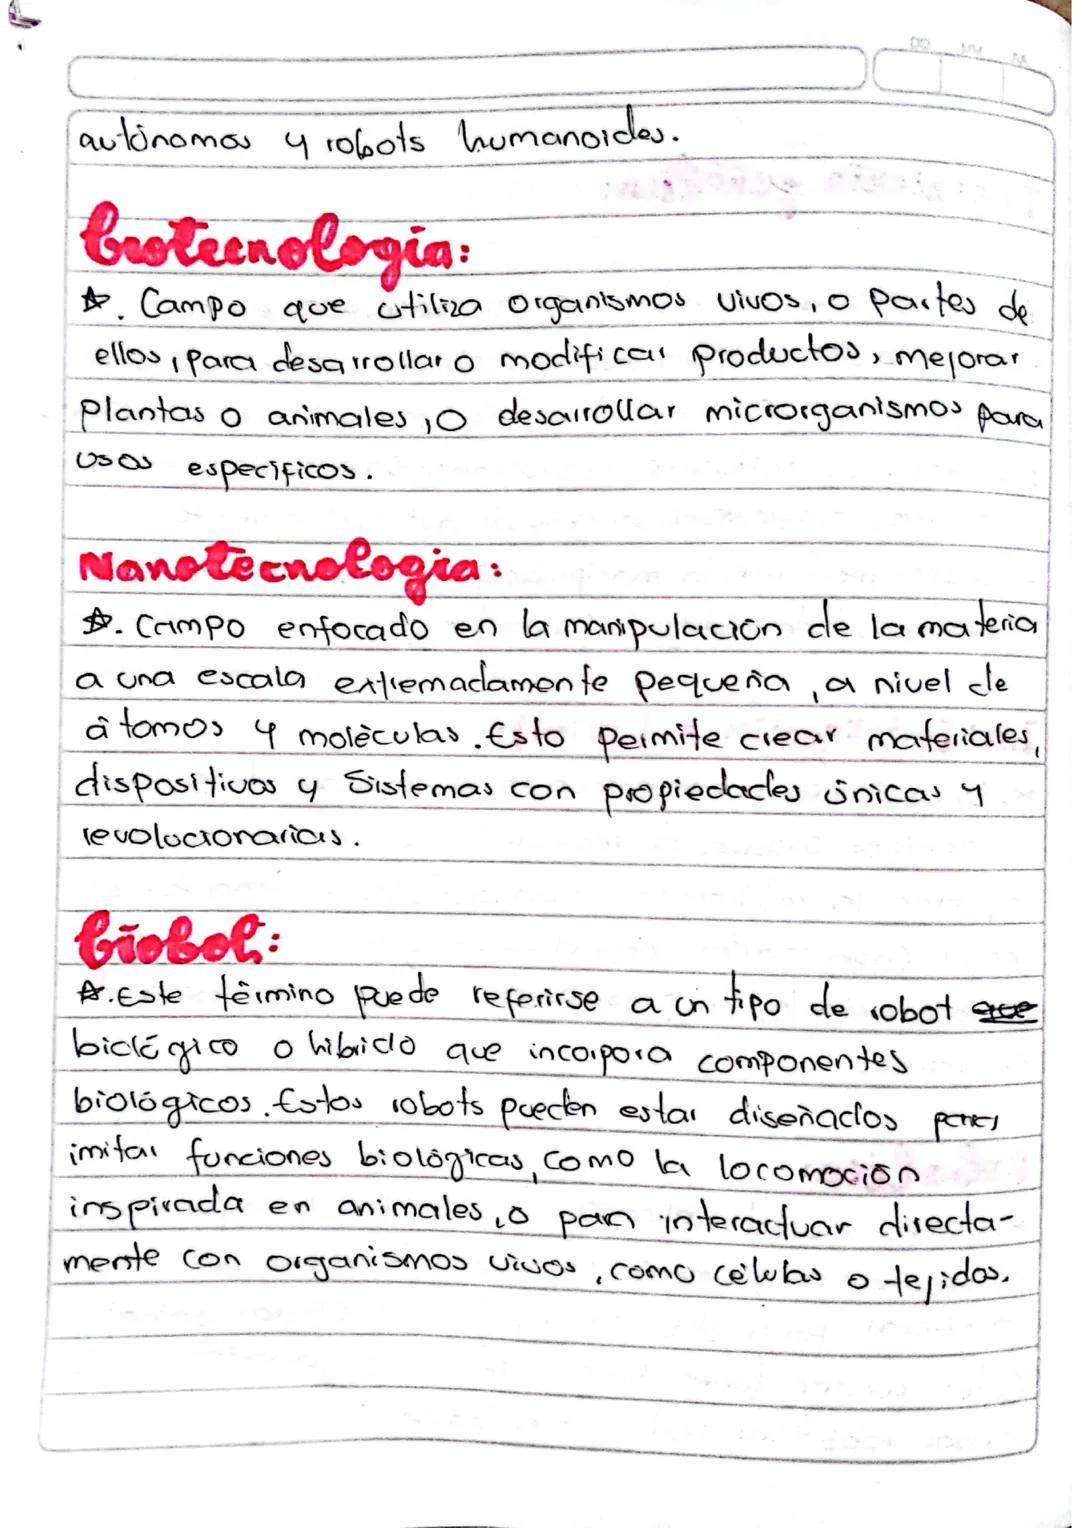 DD MM AA
autónomos y robots humanoides.
biotecnología:
☆. Campo que utiliza organismos vivos, o partes de
ellos, para desarrollar o modificar productos, mejorar
plantas o animales, o desarrollar microrganismos para
usos específicos.
Nanotecnología:
☆. Campo enfocado en la manipulación de la materia
a una escala extremadamente pequeña, a nivel de
átomos y moléculas. Esto permite crear materiales,
dispositivos y Sistemas con propiedades únicas y
revolucionarias.
biobot:
☆. Este término puede referirse a un tipo de robot que
biológico o hibrido que incorpora componentes
biológicos. Estos robots pueden estar diseñados para
imitar funciones biológicas, como la locomoción
inspirada en animales, o para interactuar directa-
mente con organismos vivos, como células o tejidos.